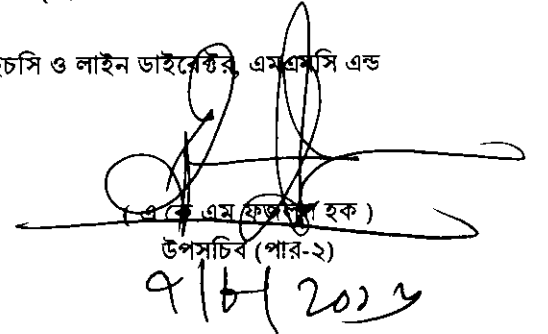 চসি ও লাইন ডাইরেক্টর, এমএমসি এন্ড
( এ কে এম ফজলুল হক )
উপসচিব (পার-২)